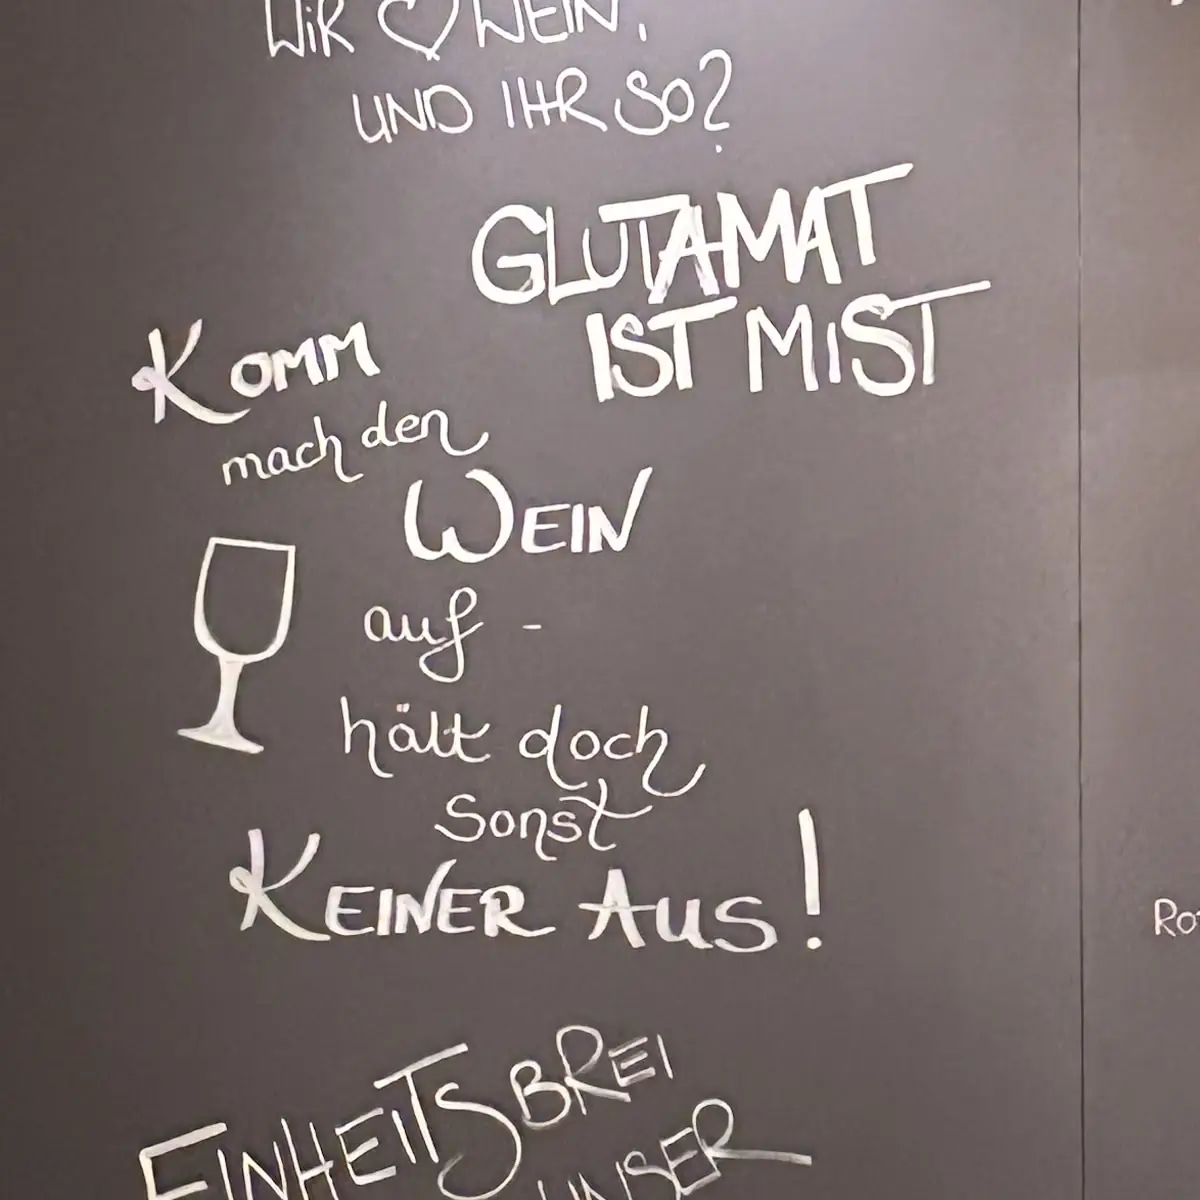 WiR ♡ WEIN,
UND IHR SO?
GLUTAMAT
IST MiST
KOMM
mach den
WEIN
auf -
hält doch
sonst
KEINER AUS!
EINHEITSBREI
UNSER